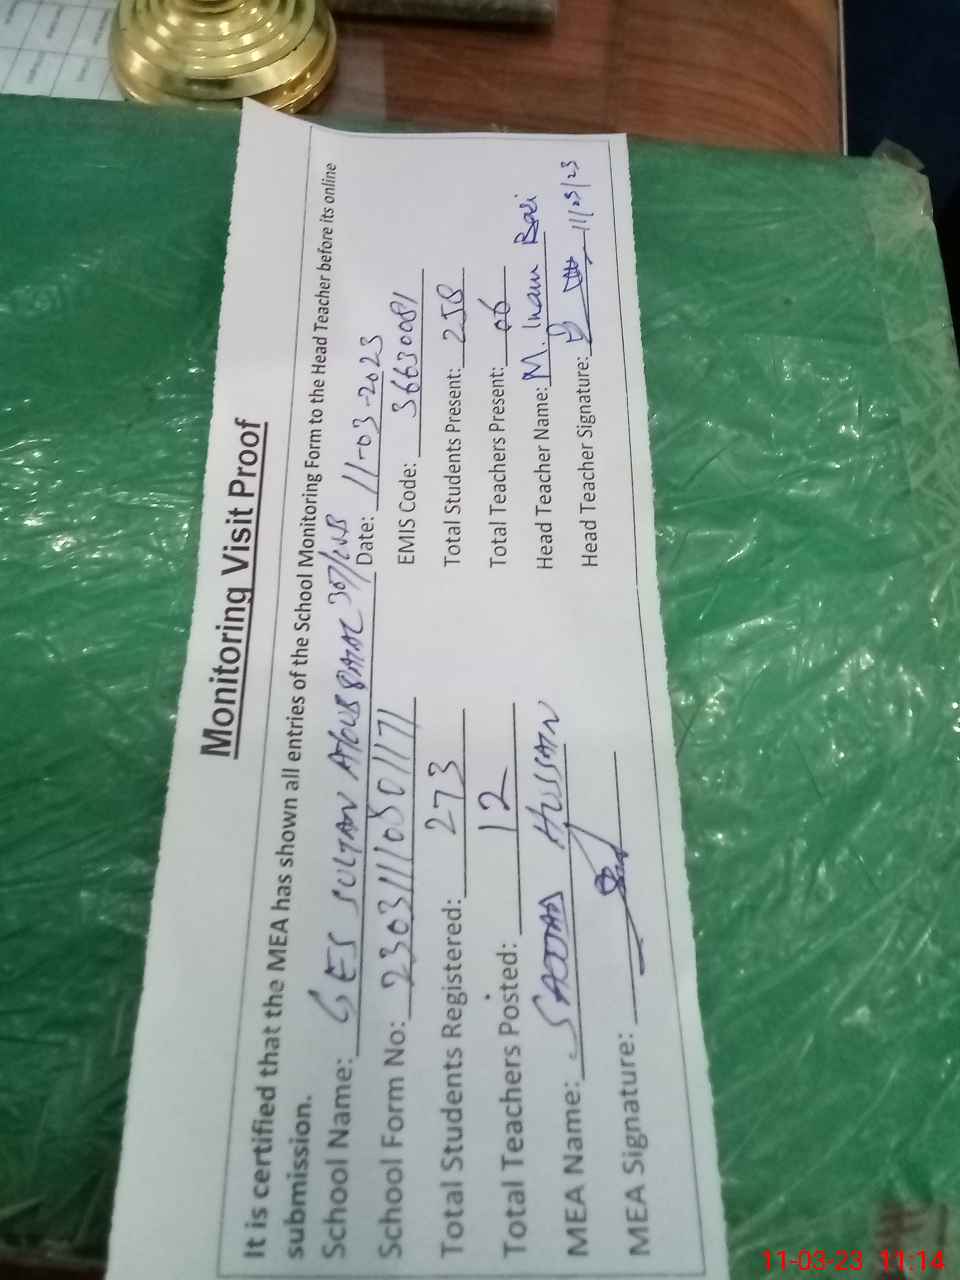 Monitoring Visit Proof
It is certified that the MEA has shown all entries of the School Monitoring Form to the Head Teacher before its online
submission.
School Name: GES SULTAN Date: 11-03-2023
School Form No: EMIS Code: 36630081
Total Students Registered: 273 Total Students Present: 258
Total Teachers Posted: 12 Total Teachers Present: 06
MEA Name: SADDAM HUSSAIN Head Teacher Name: M. Inam
MEA Signature: Head Teacher Signature: 11/03/23
11-03-23 11:14